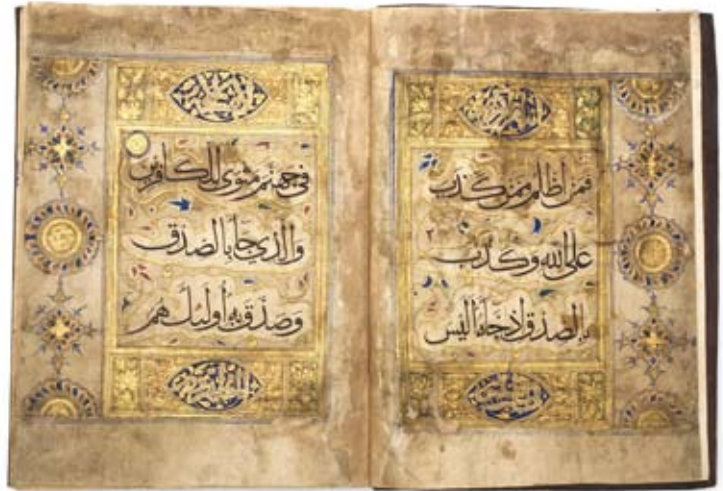 فمن اظلم ممن كذب
على الله وكذب
بالصدق اذ جاءه اليس
في جهنم مثوى للكافرين
والذي جاء بالصدق
وصدق به أولئك هم